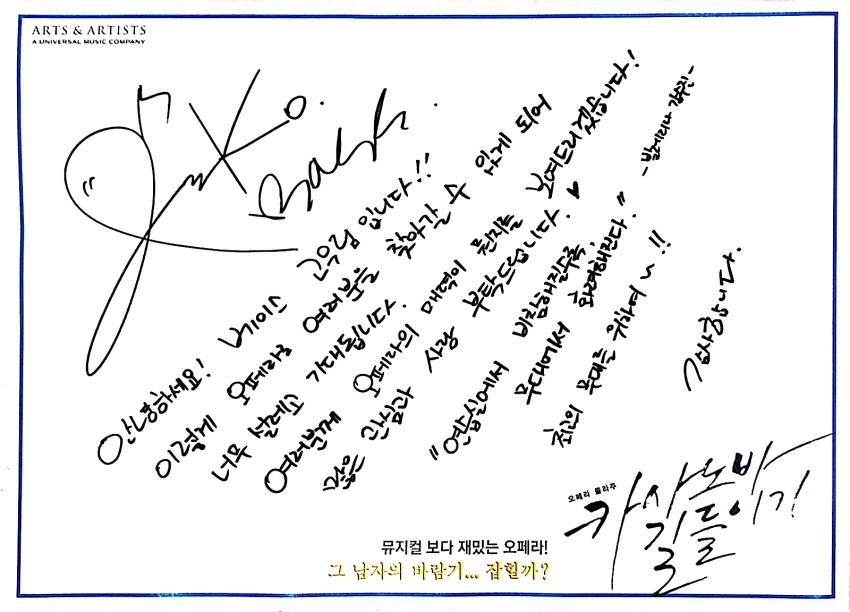 ARTS & ARTISTS
A UNIVERSAL MUSIC COMPANY
Ko.
Bass.
안녕하세요! 베이스 고우림 입니다!!
이렇게 오페라로 여러분을 찾아갈 수 있게 되어
너무 설레고 기대됩니다.
여러분께 오페라의 매력이 뭔지를 보여드리겠습니다!
많은 관심과 사랑 부탁드립니다. ♥
"연습실에서 비참해질수록,
무대에서 화려해진다."
- 발레리나 김주원 -
최고의 무대를 위하여~!!
감사합니다.
오페라 콜라주
카사노바
길들이기!
뮤지컬 보다 재밌는 오페라!
그 남자의 바람기... 잡힐까?